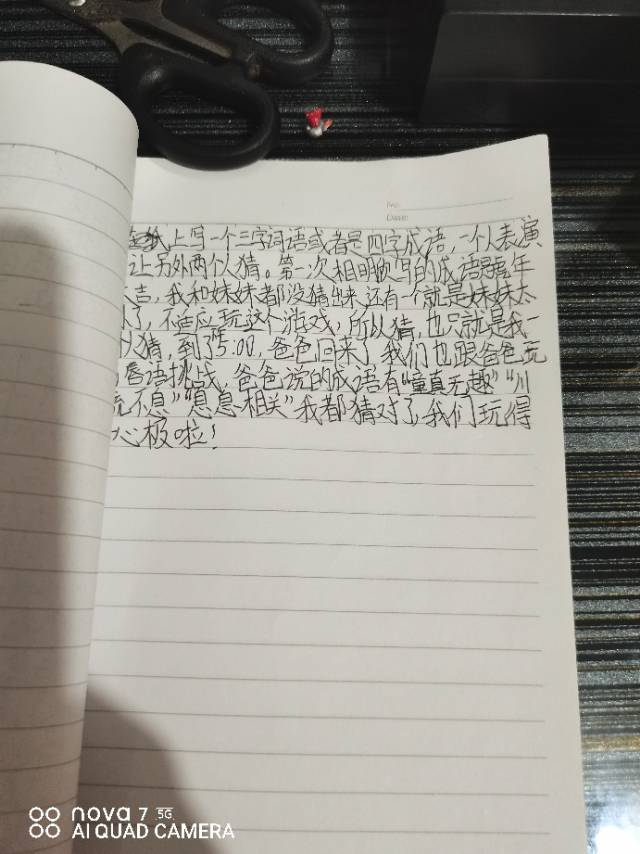 No.
Date:
纸上写一个三字词语或者是四字成语，一个人表演
让另外两个人猜。第一次相明晚写的成语是虎年
吉，我和妹妹都没猜出来，还有一个就是妹妹太
了，不适应玩这个游戏，所以猜，也只就是我一
人猜，到了5:00，爸爸回来了我们也跟爸爸玩
唇语挑战，爸爸说的成语有“童真无趣”“川
流不息”“息息相关”我都猜对了，我们玩得
心极啦！
nova 7 5G
AI QUAD CAMERA